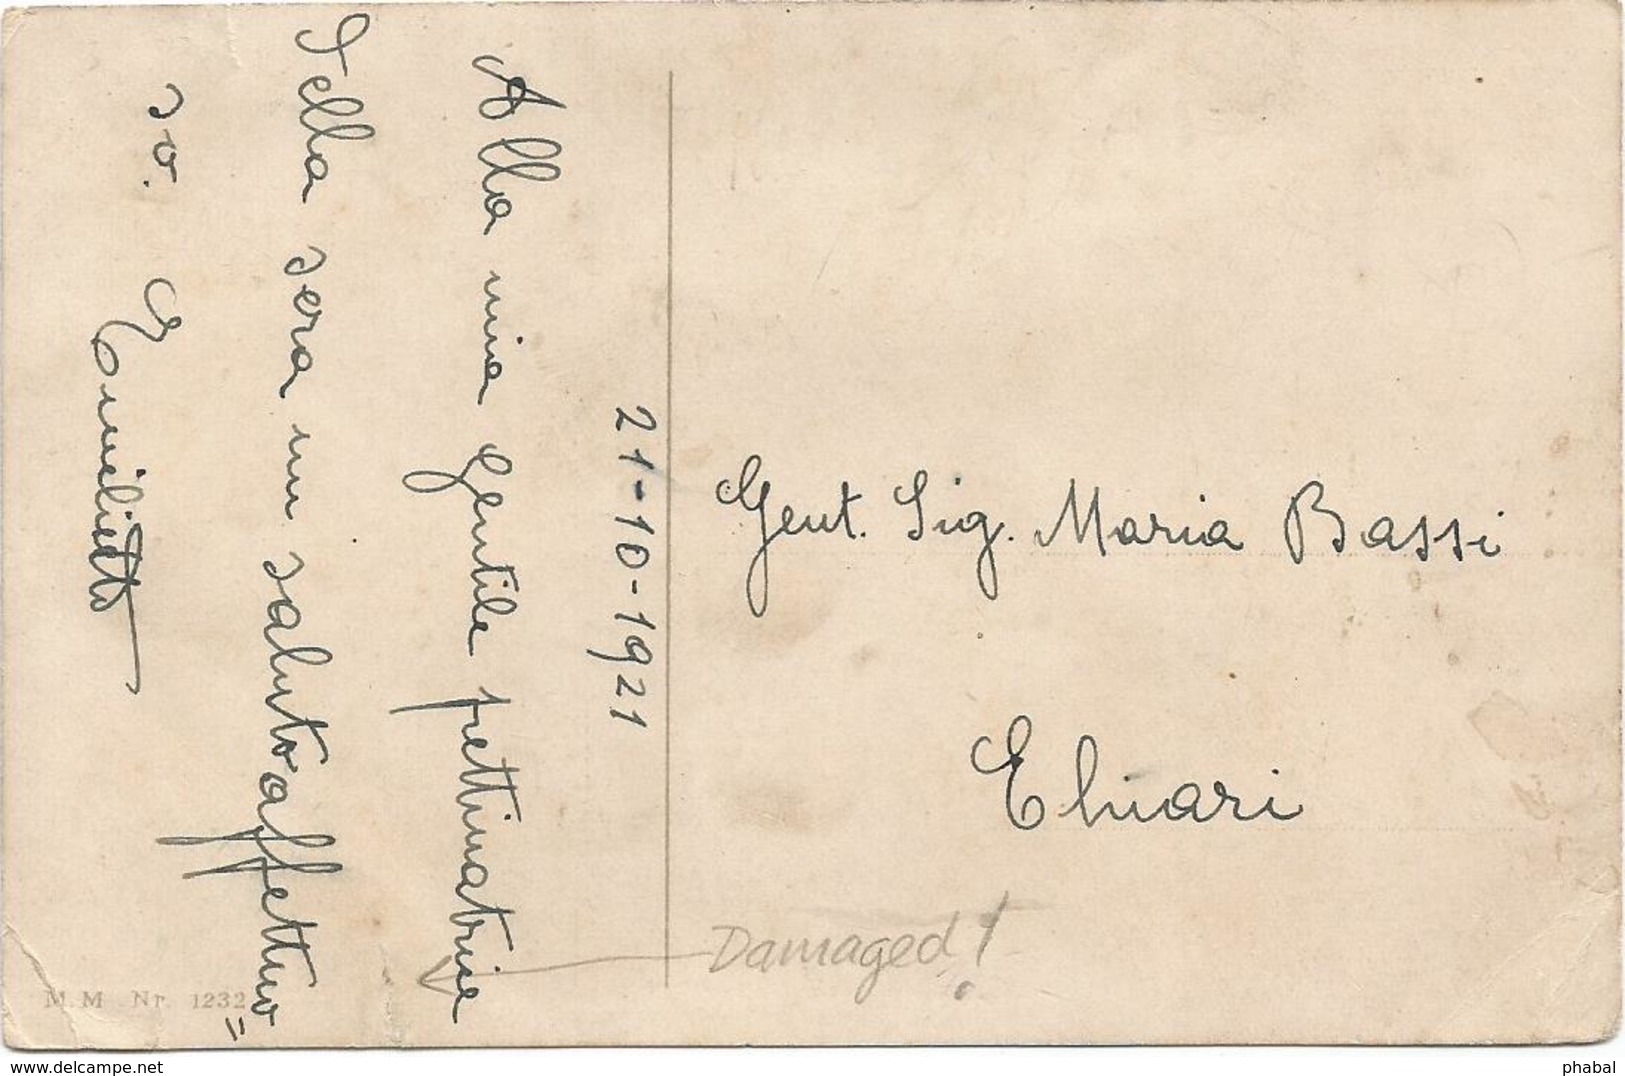 21-10-1921
Alla mia gentile pettinatrice
della sera un saluto affettuo=
so. Emilietto
Gent. Sig. Maria Bassi
Chiari
Damaged!
M.M Nr. 1232
delcampe.net
phabal